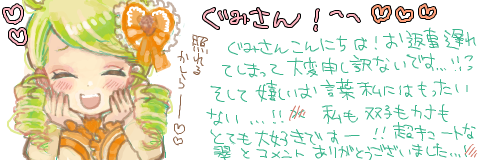 ぐみさん！〜〜
照れる
かしらー
ぐみさんこんにちは！お返事遅れ
てしまって大変申し訳ないです…!!
そして嬉しいお言葉私にはもったい
ない…!! 私も双子もカナも
とても大好きですー!!超キュートな
翠とコメントありがとうございました…